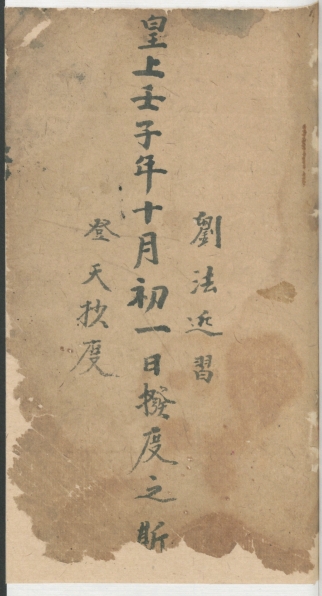 劉法近習
皇上壬子年十月初一日撥度之斯
登天抄度